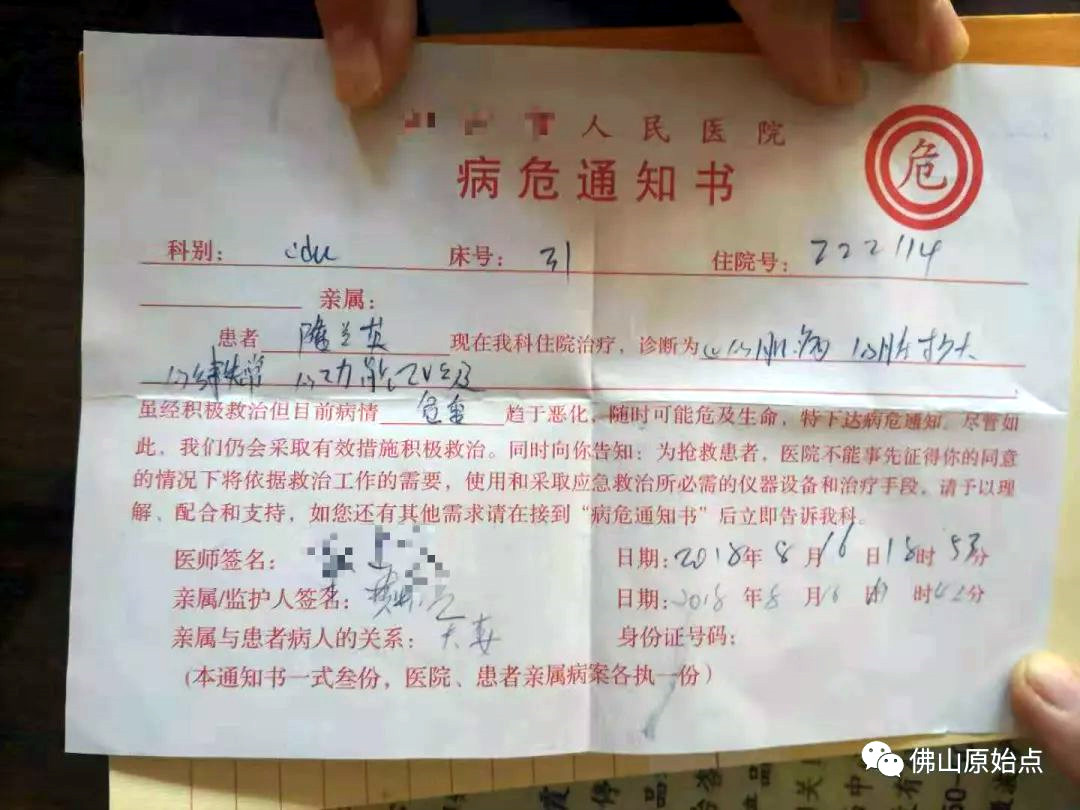 人民医院
病危通知书
危
科别： cdu 床号：31 住院号：222114
亲属：
患者 隆兰英 现在我科住院治疗，诊断为 心肌病 心脏扩大
心律失常 心功能IV级
虽经积极救治但目前病情 危重 趋于恶化，随时可能危及生命，特下达病危通知。尽管如
此，我们仍会采取有效措施积极救治。同时向你告知：为抢救患者，医院不能事先征得你的同意
的情况下将依据救治工作的需要，使用和采取应急救治所必需的仪器设备和治疗手段，请予以理
解、配合和支持，如您还有其他需求请在接到“病危通知书”后立即告诉我科。
医师签名： 日期：2018年8月16日18时53分
亲属/监护人签名： 日期：2018年8月16 时42分
亲属与患者病人的关系：夫妻 身份证号码：
(本通知书一式叁份，医院、患者亲属病案各执一份）
佛山原始点